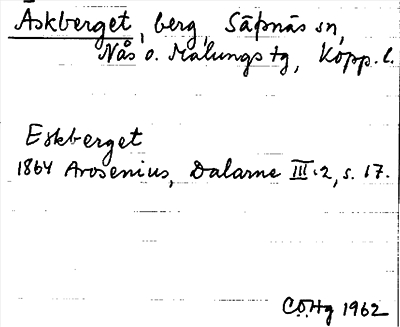 Äskberget, berg, Säfsnäs sn,
Nås o. Malungs tg, Kopp. l.
Eskberget
1864 Arosenius, Dalarne III.2, s. 17.
C.O.Hg 1962